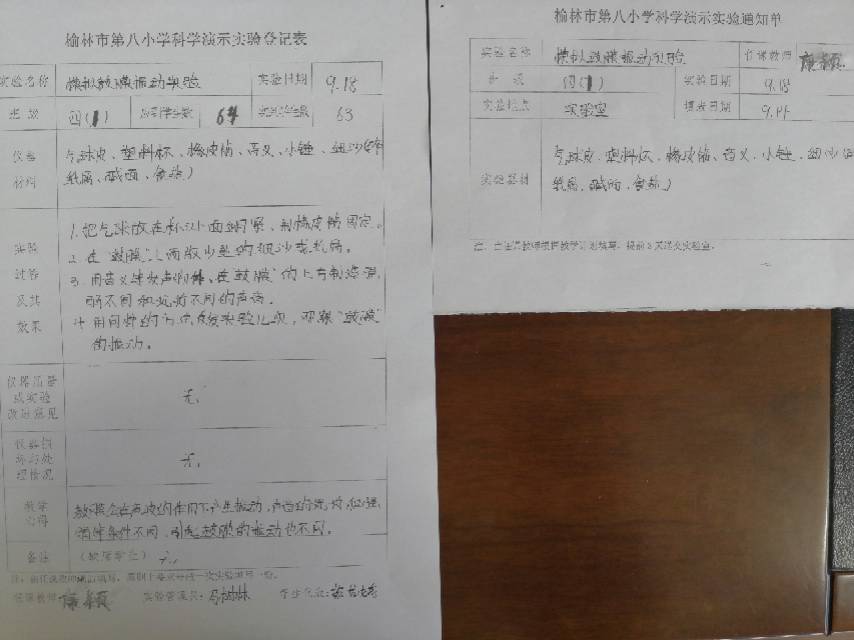 榆林市第八小学科学演示实验登记表
实验名称 模拟鼓膜振动实验 实验日期 9.18
班级 四(1) 应到学生数 64 实到学生数 63
仪器 气球皮、塑料杯、橡皮筋、音叉、小锤、细沙
材料 纸屑、碱面、食盐)
1.把气球放在杯口上面绷紧、用橡皮筋固定。
实验 2.在"鼓膜"上面撒少量的细沙或纸屑。
过程 3.用音叉
及其 弱不同和远近不同的声音。
效果 4.用同样的方式反复实验几次,观察"鼓膜"
的振动。
仪器质量
或实验
改进意见 无。
仪器损
坏与处
理情况 无。
教学 鼓膜会在声波的作用下产生振动,声音的
心得 条件不同,引起鼓膜的振动也不同。
备注 (缺席学生) 无。
任课教师: 实验管理员:马树林 学生代表:
榆林市第八小学科学演示实验通知单
实验名称 模拟鼓膜振动实验 任课教师
班级 四(1) 实验日期 9.18
实验地点 实验室 填表日期 9.11
气球皮、塑料杯、橡皮筋、音叉、小锤、细沙
实验器材 纸屑、碱面、食盐)
注:由任课教师根据教学计划填写,提前3天送交实验室。